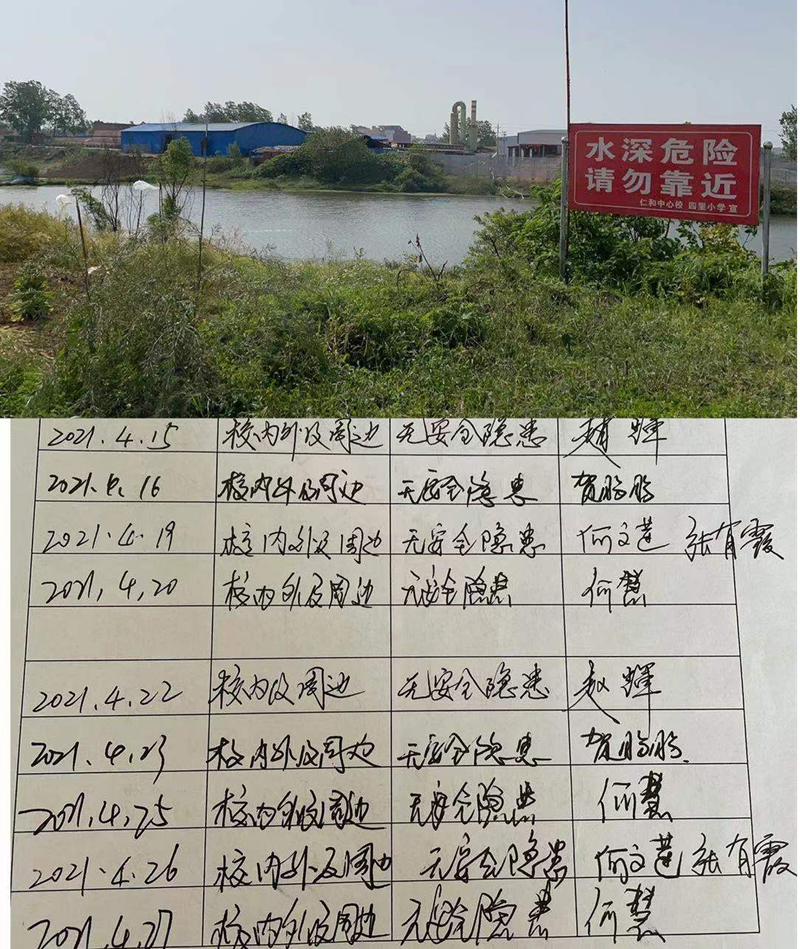 水深危险
请勿靠近
仁和中心校 四里小学 宣
2021.4.15 校内外及周边 无安全隐患 赵辉
2021.4.16 校内外及周边 无安全隐患 贺鹏鹏
2021.4.19 校内外及周边 无安全隐患 何文莲 张有霞
2021.4.20 校内外及周边 无安全隐患 何慧
2021.4.22 校内及周边 无安全隐患 赵辉
2021.4.23 校内外及周边 无安全隐患 贺鹏鹏
2021.4.25 校内外及周边 无安全隐患 何慧
2021.4.26 校内外及周边 无安全隐患 何文莲 张有霞
2021.4.27 校内外及周边 无安全隐患 何慧